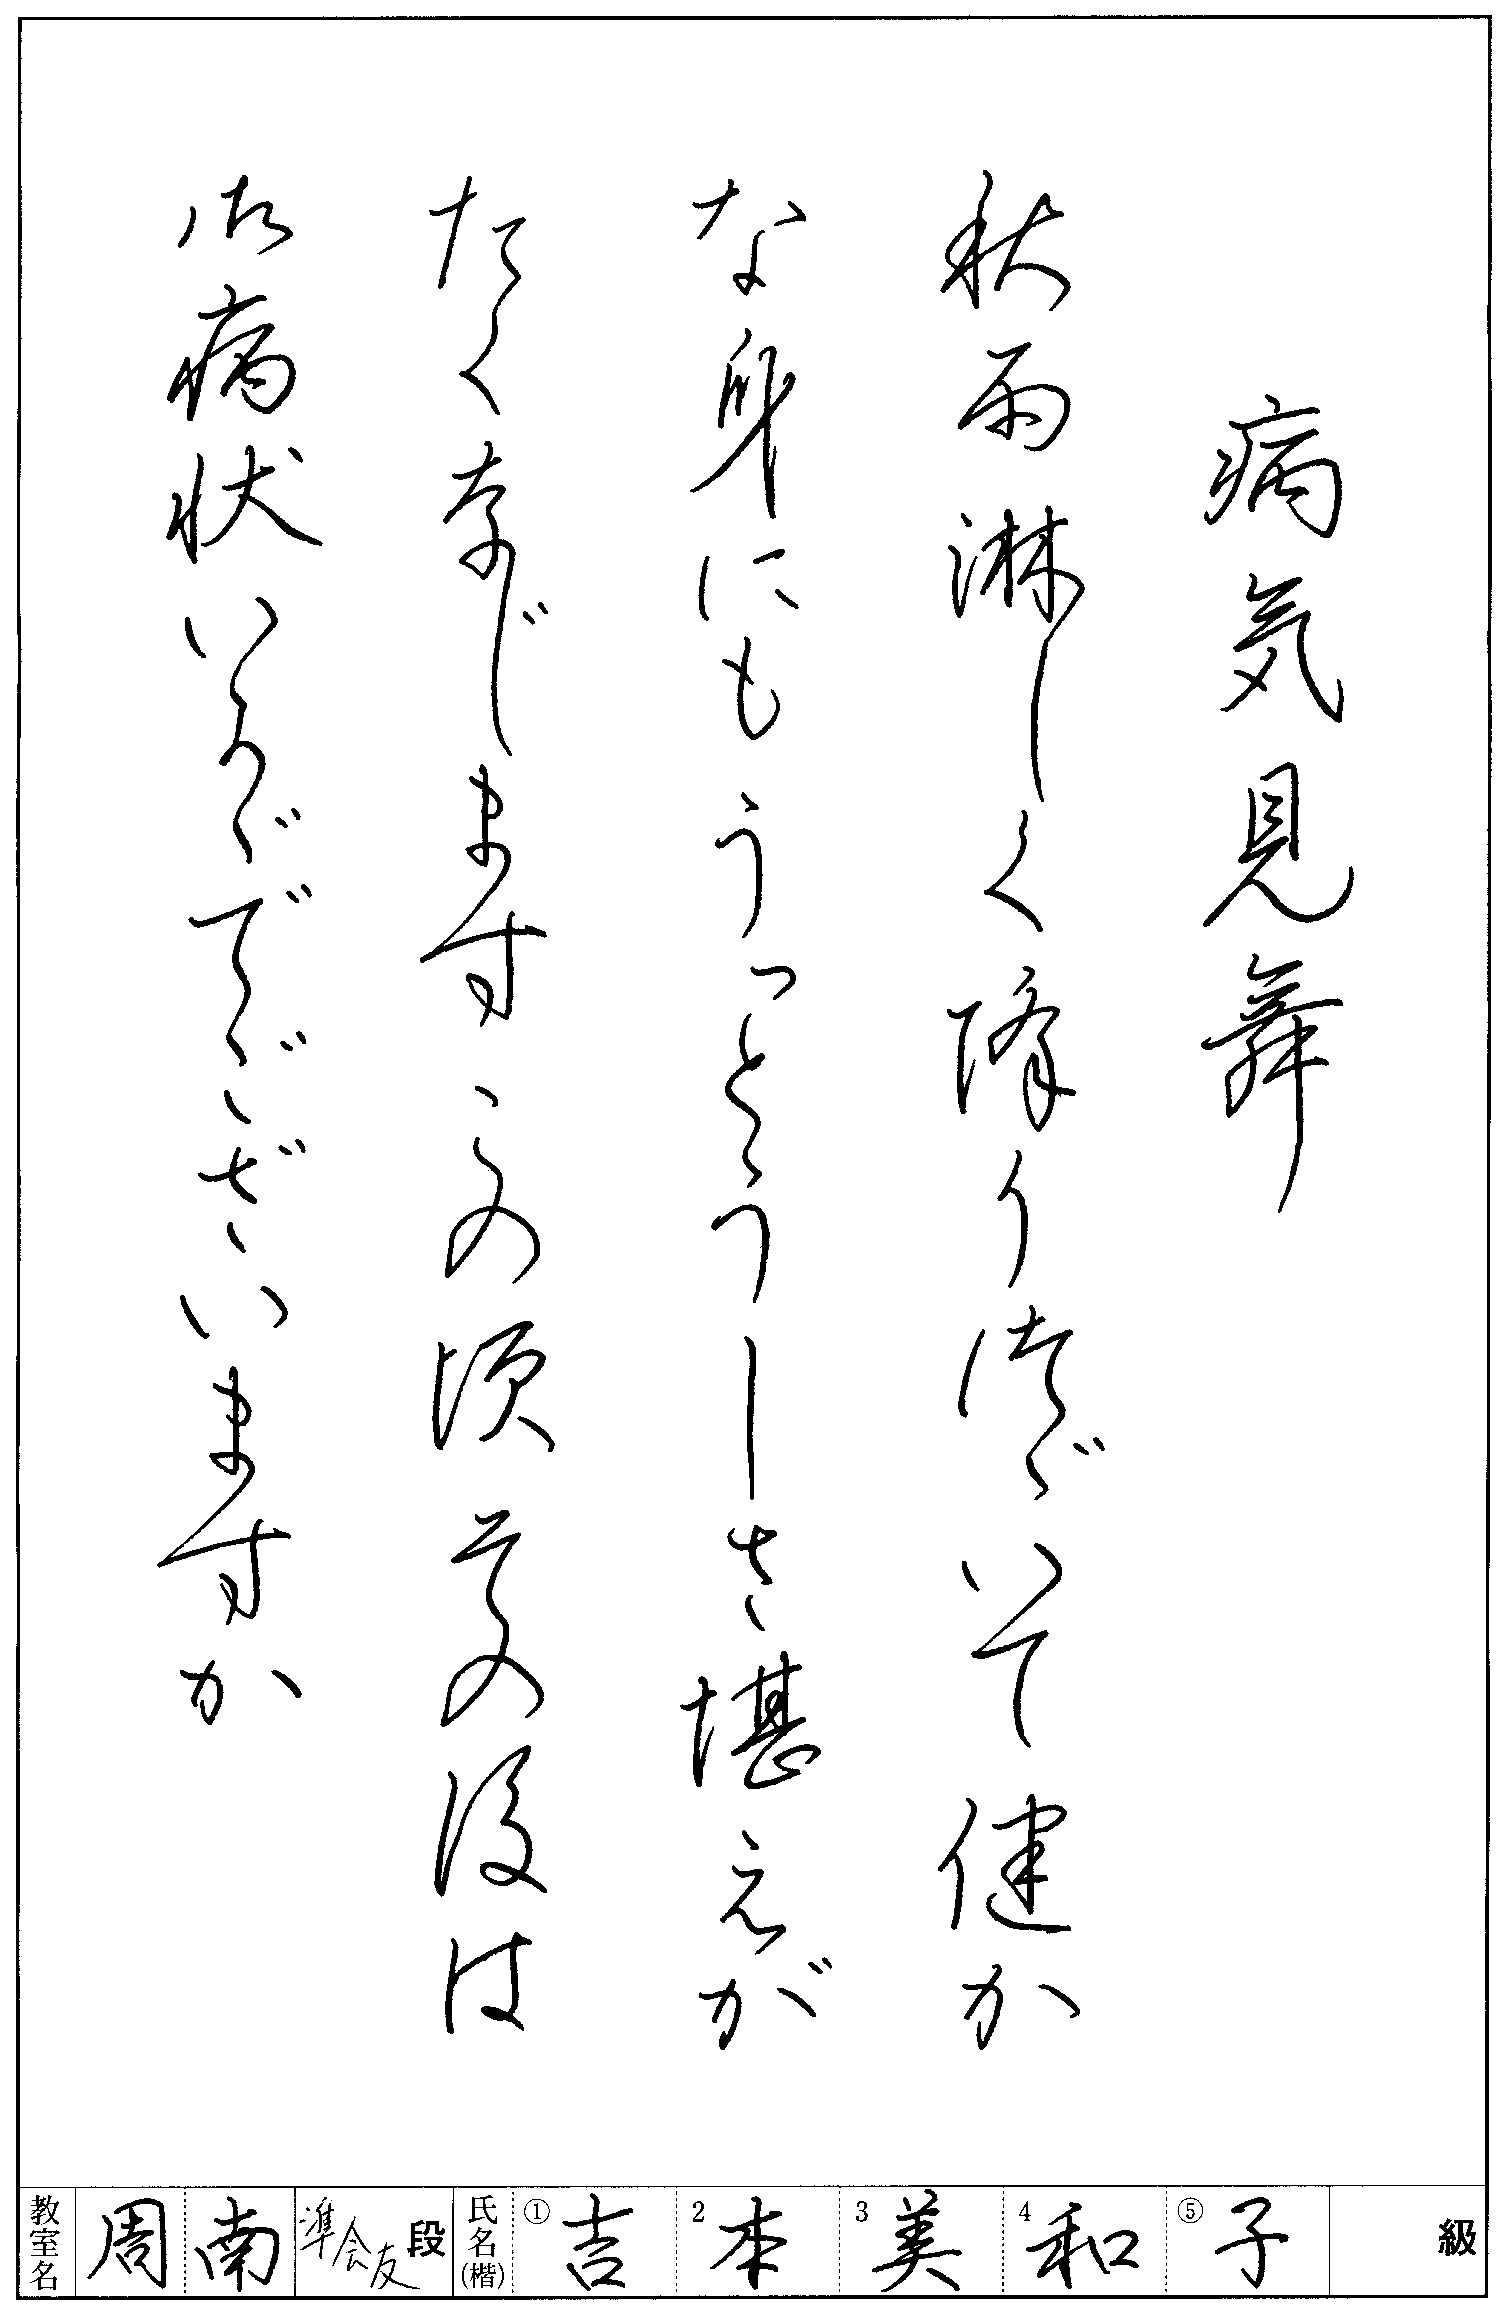 病気見舞
秋雨淋しく降りつゞいて健か
な身にもうっとうしさ堪えが
たく存じますこの頃その後は
御病状いかゞでございますか
教室名 周南 準会友 段 氏名(楷) ①吉 2本 3美 4和 ⑤子 級